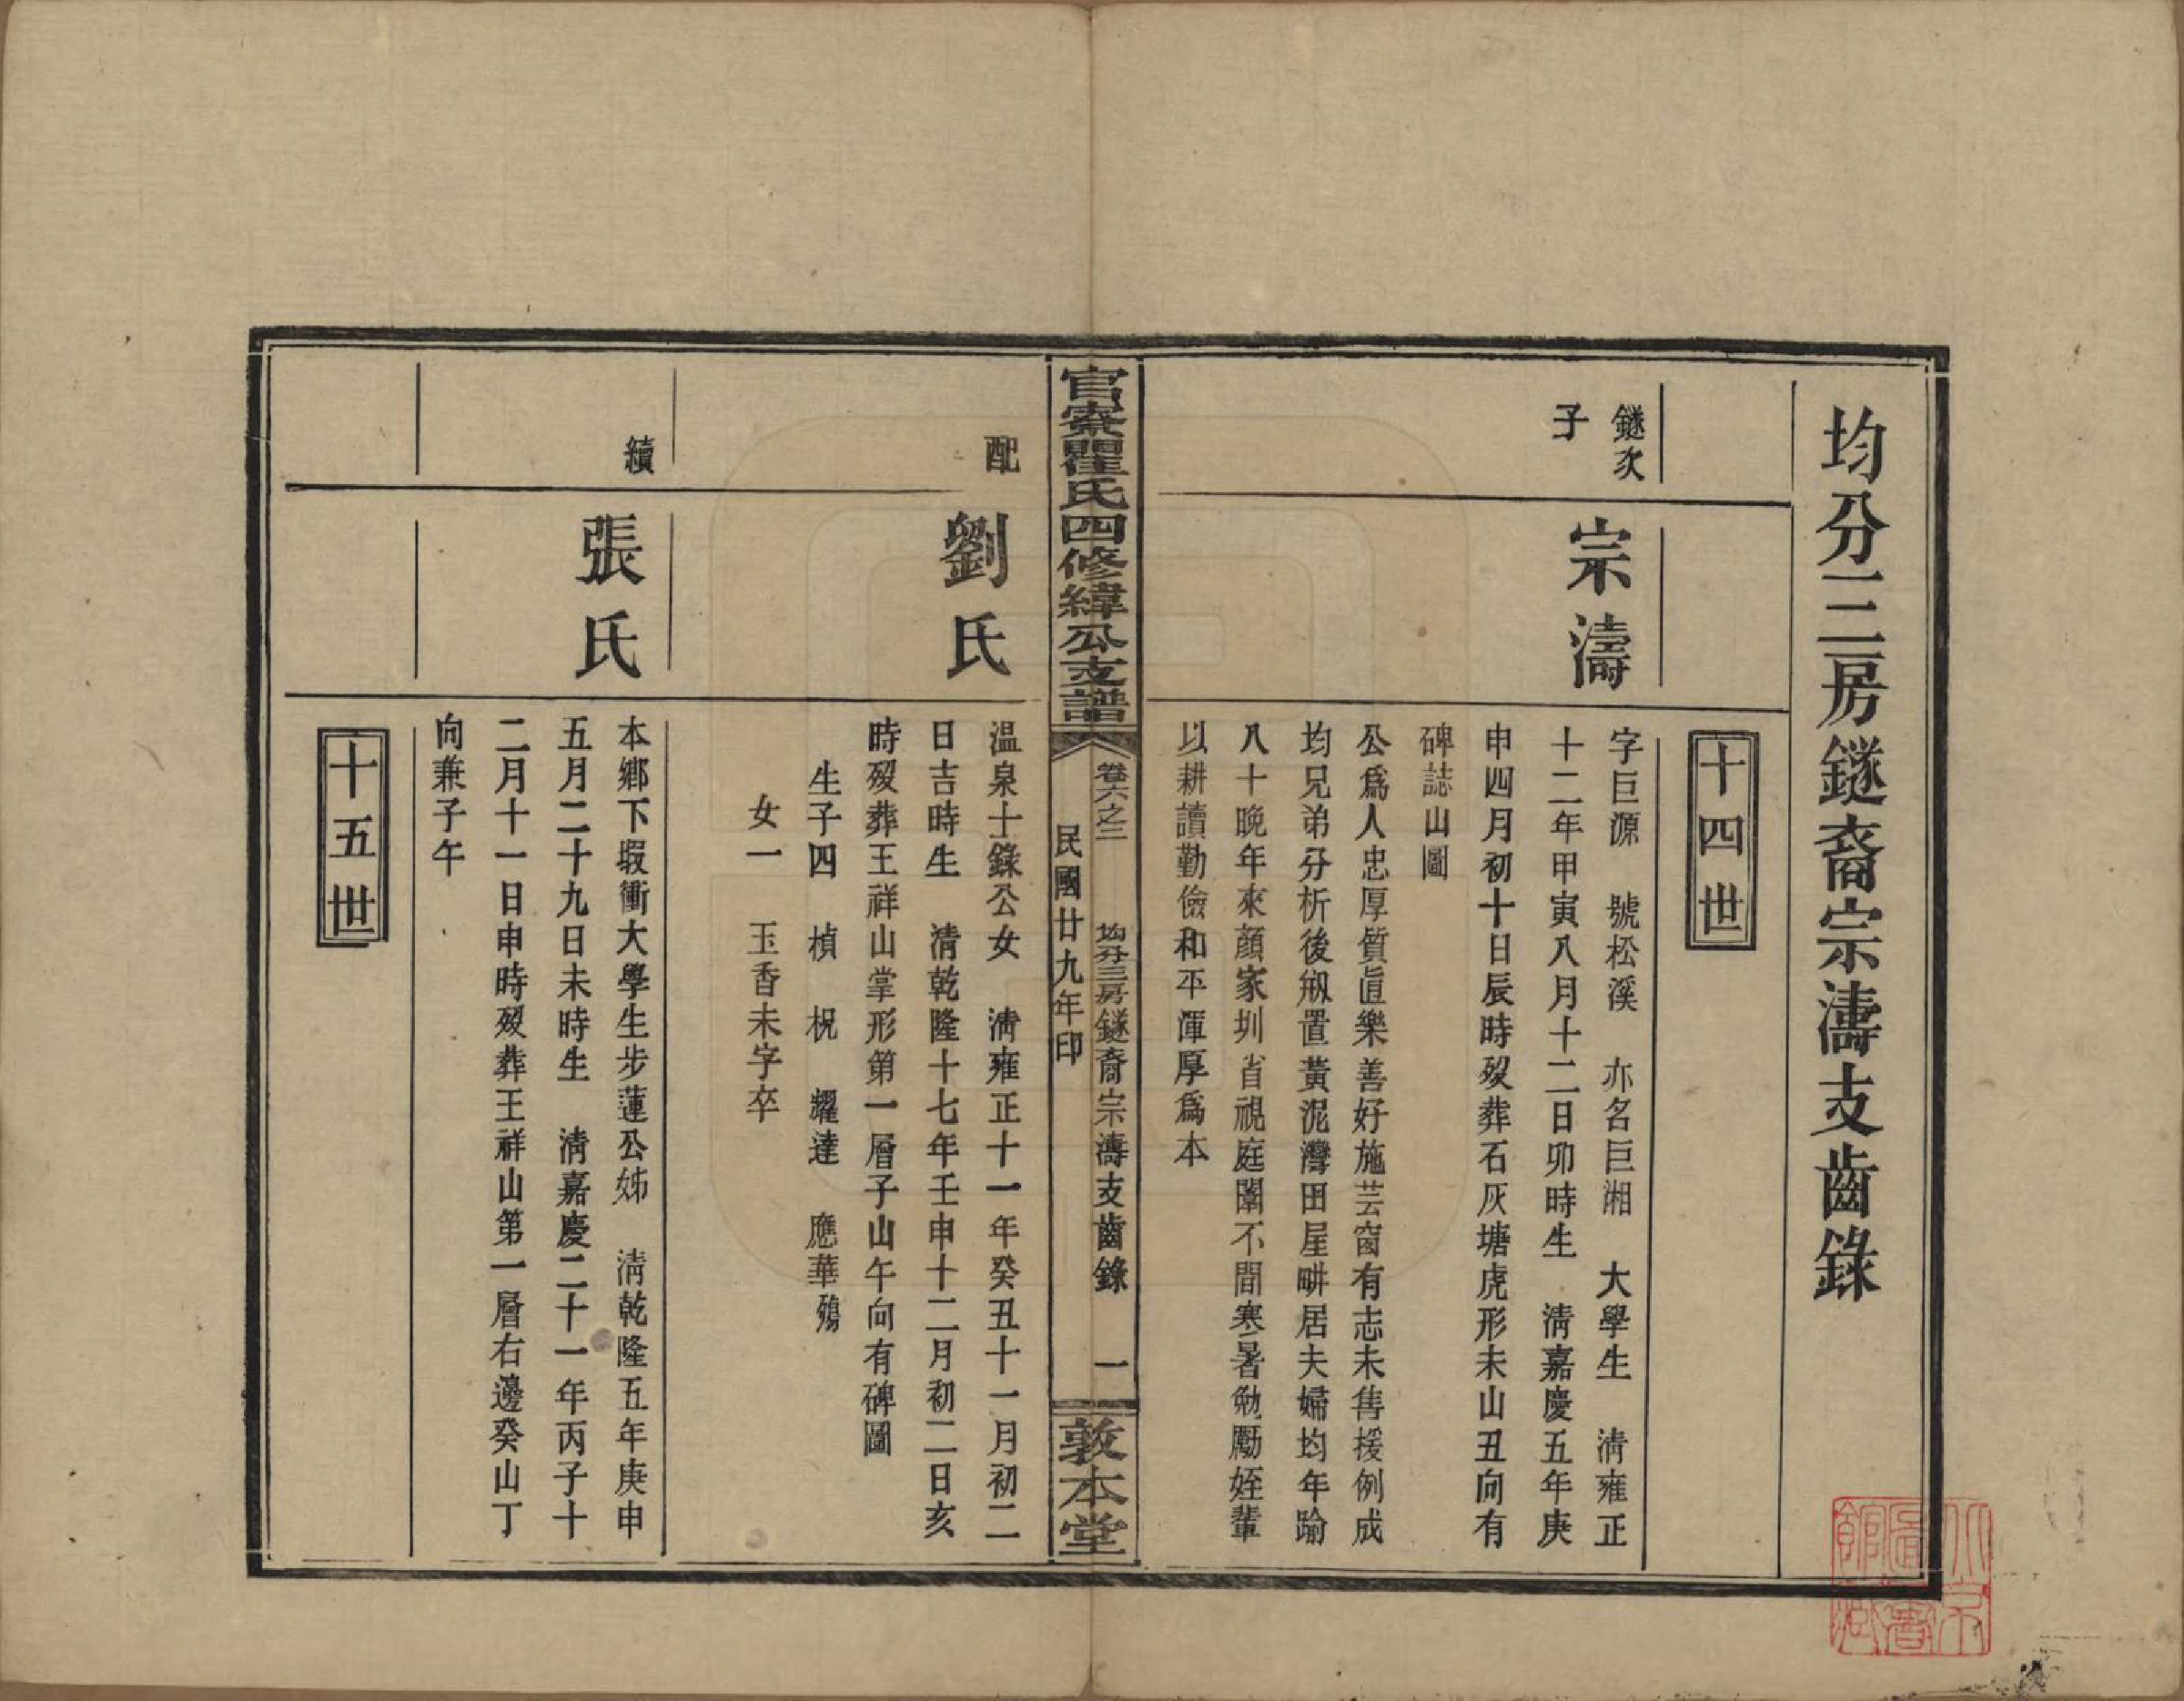 均分三房鐩裔宗濤支齒錄
十四世
鐩次
子
宗濤
字巨源　號松溪　亦名巨湘　大學生　清雍正
十二年甲寅八月十二日卯時生　清嘉慶五年庚
申四月初十日辰時歿葬石灰塘虎形未山丑向有
碑誌山圖
公爲人忠厚質直樂善好施芸窗有志未售援例成
均兄弟分析後剏置黃泥灣田屋畊居夫婦均年踰
八十晚年來顏家圳省視庭闈不間寒暑勉勵姪輩
以耕讀勤儉和平渾厚爲本
官寮瞿氏四修緯公支譜
卷六之三　均分三房鐩裔宗濤支齒錄　一
民國廿九年印
敦本堂
配
劉氏
温泉十錄公女　清雍正十一年癸丑十一月初二
日吉時生　清乾隆十七年壬申十二月初二日亥
時歿葬王祥山掌形第一層子山午向有碑圖
生子四　楨　柷　耀達　應華殤
女一　玉香未字卒
續
張氏
本鄉下塅衝大學生步蓮公姊　清乾隆五年庚申
五月二十九日未時生　清嘉慶二十一年丙子十
二月十一日申時歿葬王祥山第一層右邊癸山丁
向兼子午
十五世
北京圖書館藏